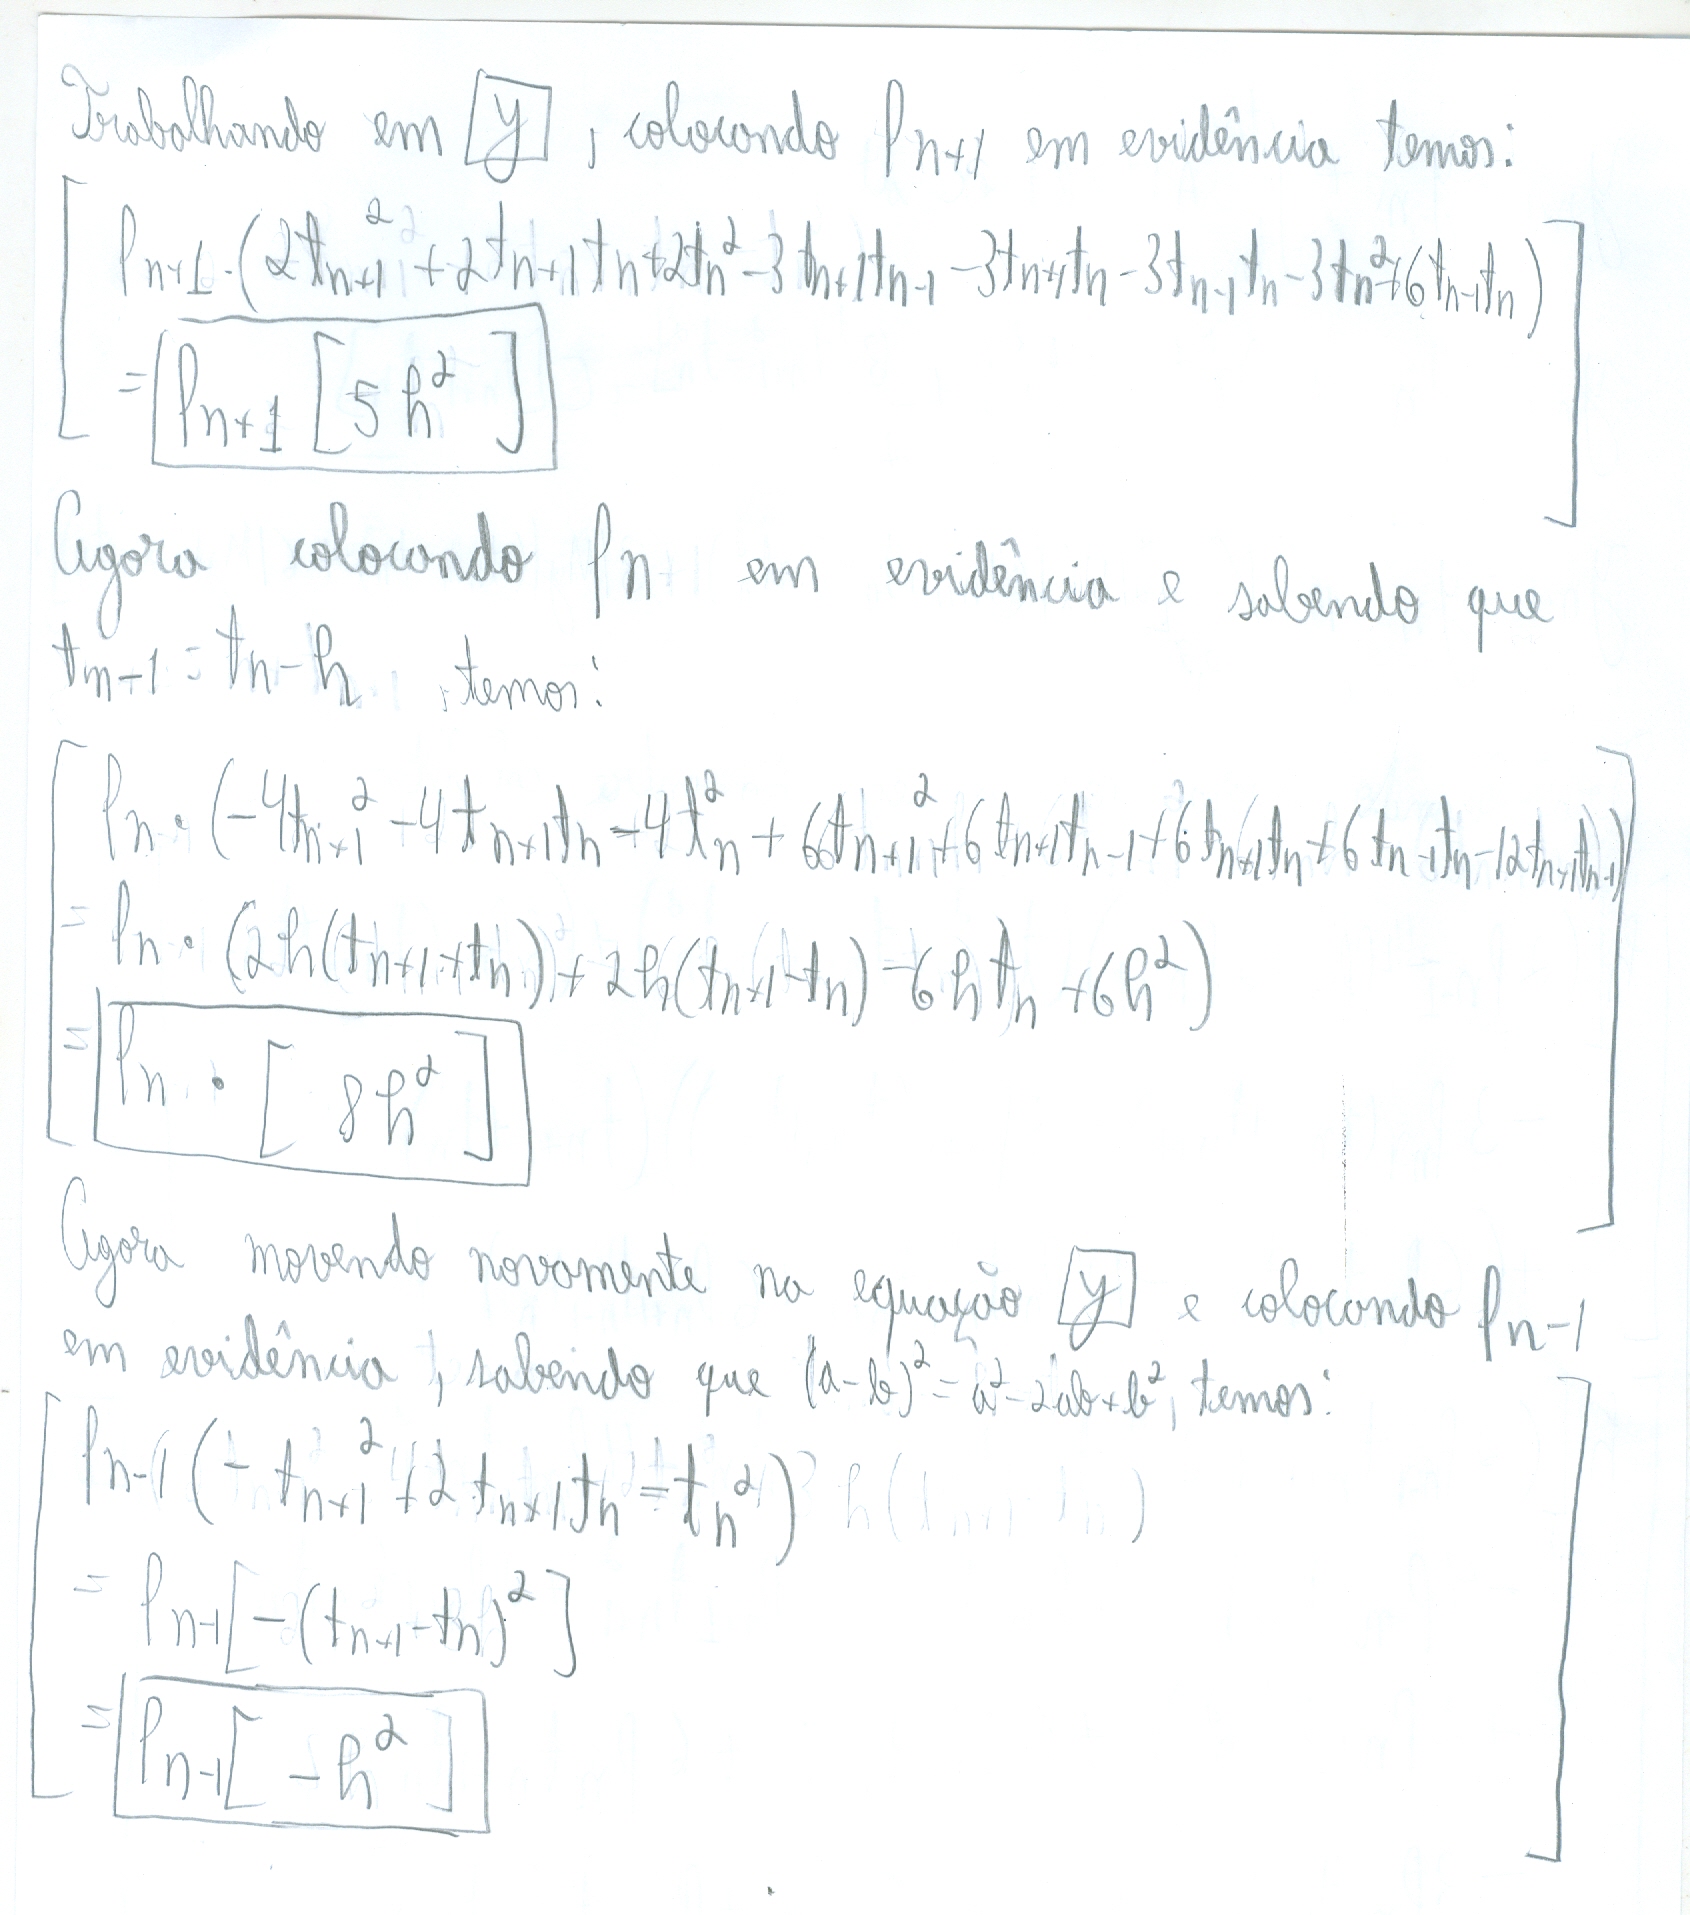 Trabalhando em [y], colocando fn+1 em evidência temos:
fn+1·(2tn+1² + 2tn+1tn + 2tn² - 3tn+1tn-1 - 3tn+1tn - 3tn-1tn - 3tn² + 6tn-1tn)
= fn+1 [5h²]
Agora colocando fn em evidência e sabendo que
tn-1 = tn - h, temos:
fn·(-4tn+1² - 4tn+1tn - 4tn² + 6tn+1² + 6tn+1tn-1 + 6tn+1tn + 6tn-1tn - 12tn+1tn-1)
= fn·(2h(tn+1+tn) + 2h(tn+1-tn) - 6htn + 6h²)
= fn·[8h²]
Agora movendo novamente na equação [y] e colocando fn-1
em evidência, sabendo que (a-b)² = a² - 2ab + b², temos:
fn-1(-tn+1² + 2tn+1tn - tn²)
= fn-1[-(tn+1-tn)²]
= fn-1[-h²]